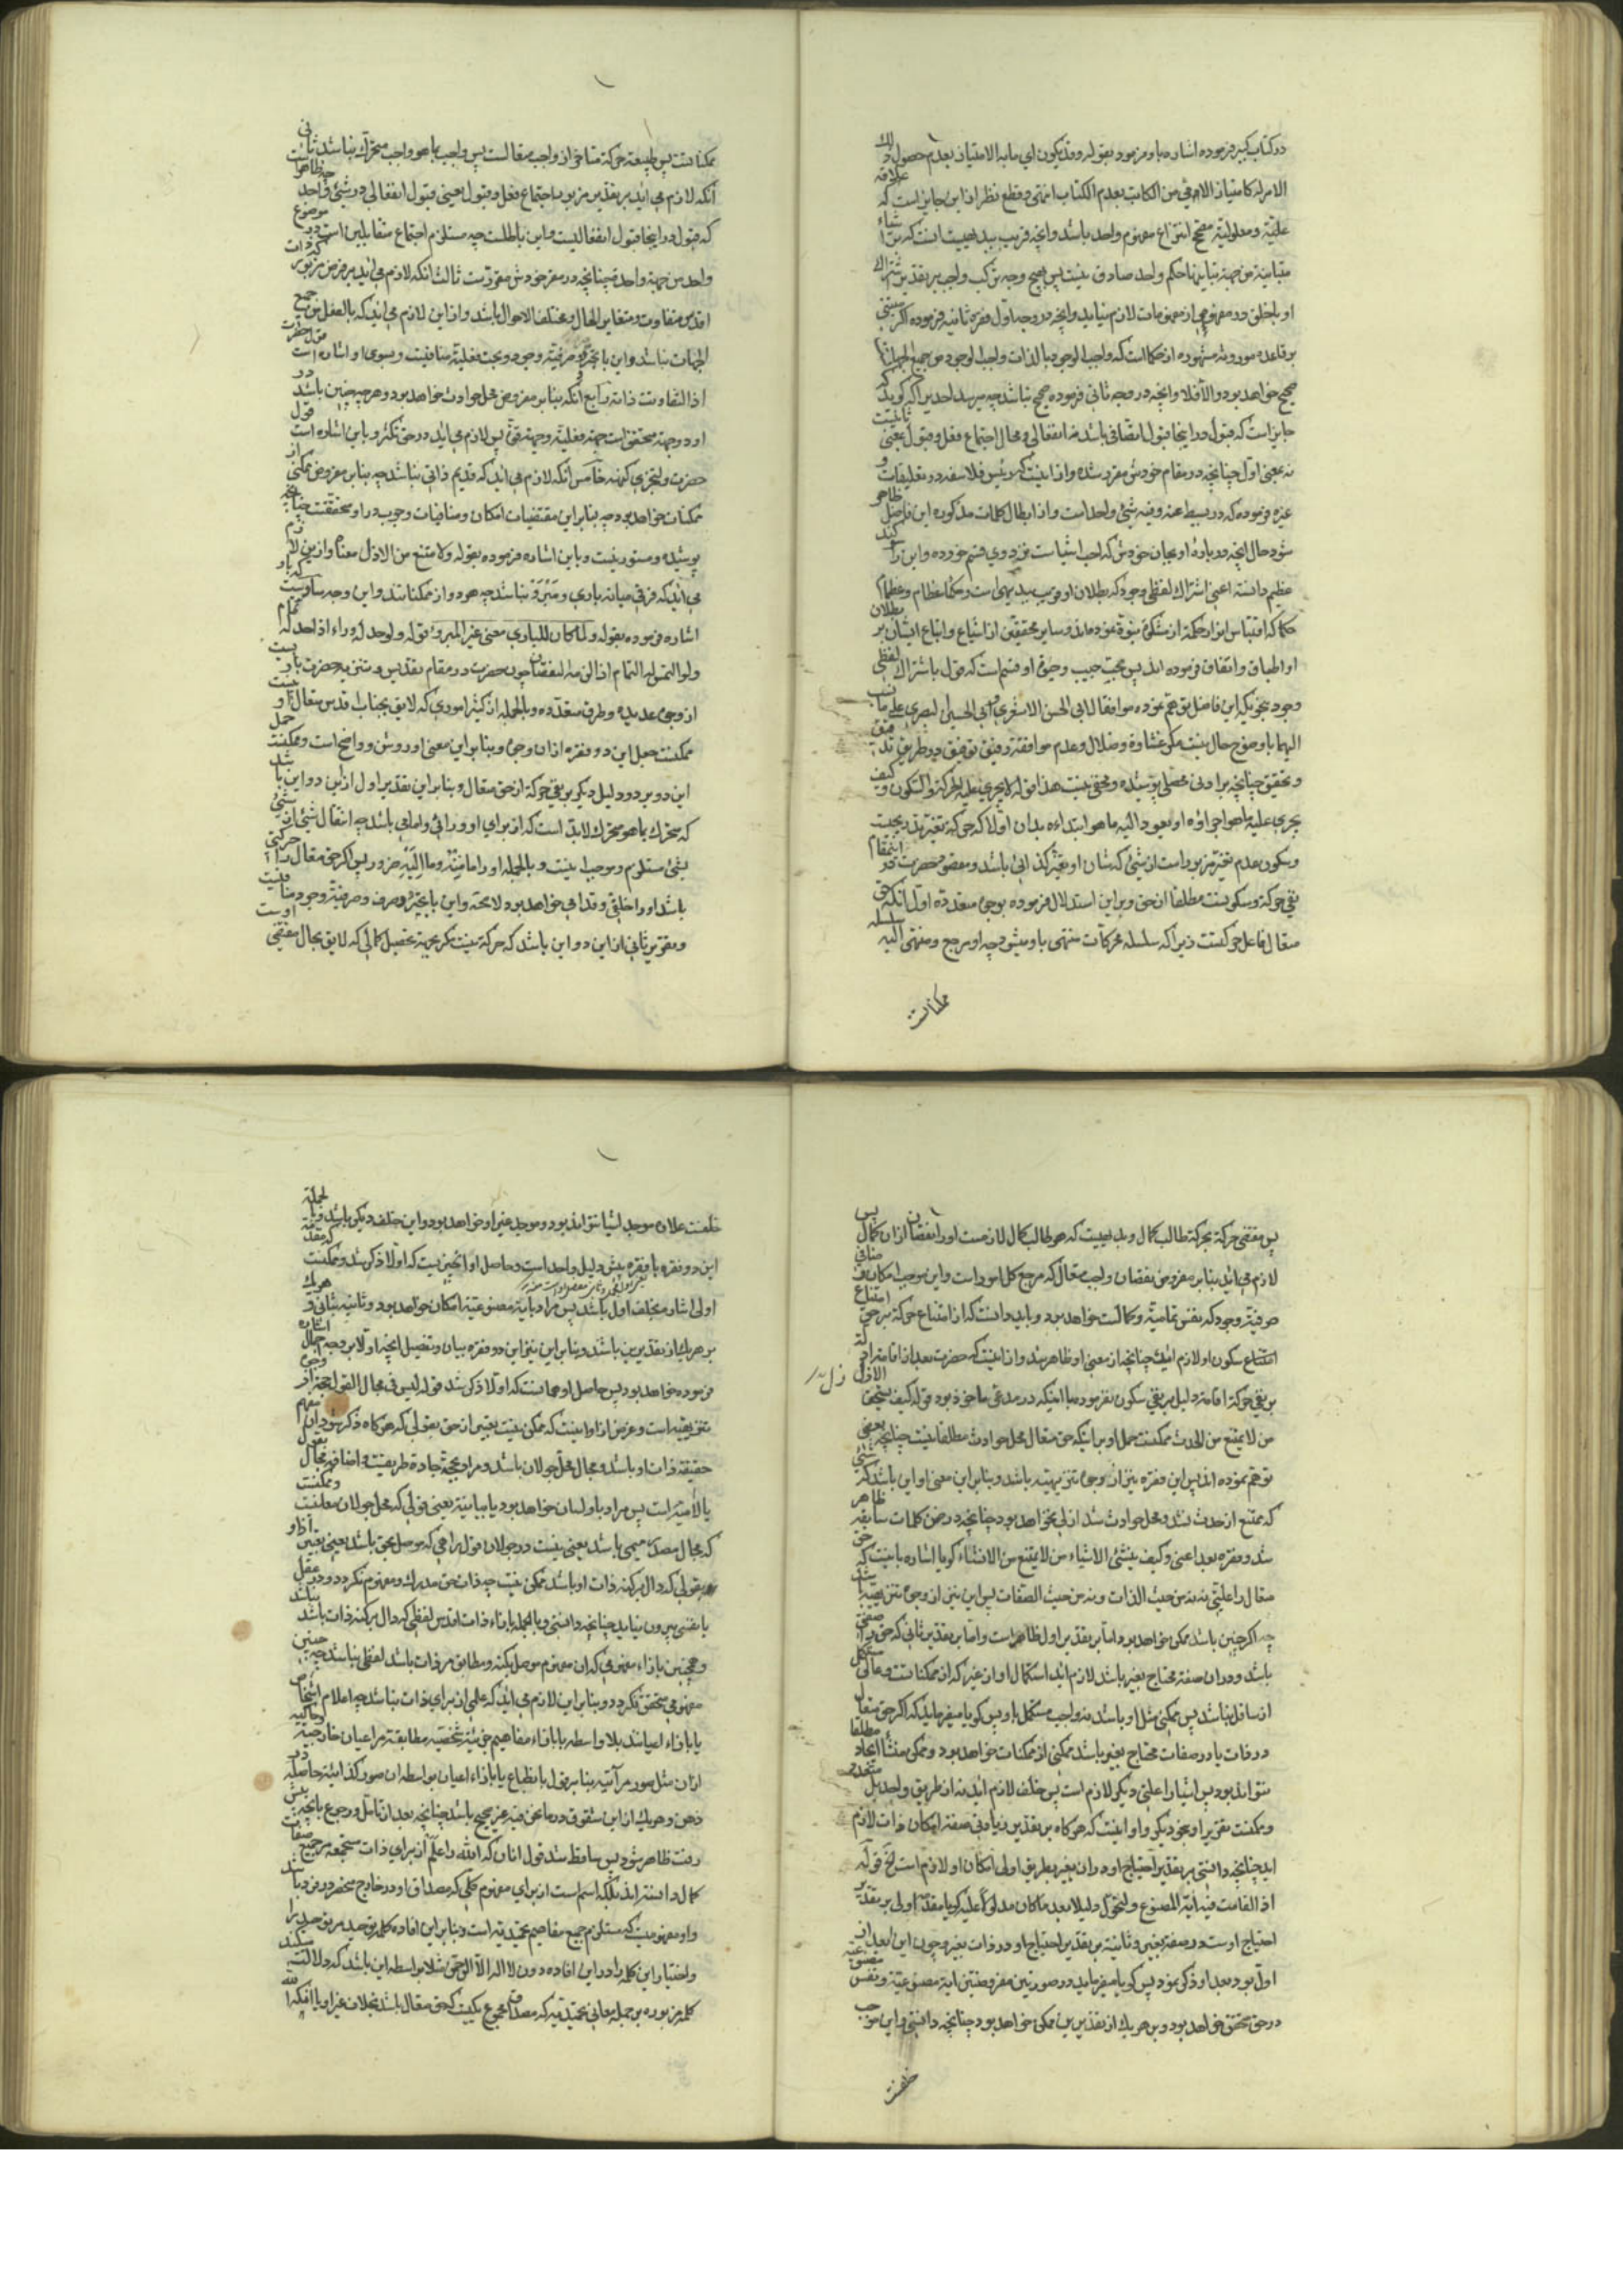 در کتاب کبیر فرموده اشاره باو فرمود بقوله وقد یکون ای ما به الامتیاز بعدم حصول ذلك
الامر له کامتیاز الامی من الکاتب بعدم الکتاب انتهی و قطع نظر از این جایز است که علاقه
علیّة و معلولیّة مصحح انتزاع مفهوم واحد باشد و آنچه قریب ببدیهیست انست که من اشیاء
متباینة من جهة تباینها حکم واحد صادق نیست پس بهیچ وجه ترکب واجب بر تقدیر اشتراك
او با خلق در مفهومی از مفهومات لازم نیاید و آنچه در وجه اول فقره ثانیه فرموده اگر مبتنی
بر قاعده موروثه مشهوره از حکما است که واجب الوجود بالذات واجب الوجود من جمیع الجهات
صحیح خواهد بود والا فلا و آنچه در وجه ثانی فرموده صحیح نباشد چه میرسد احدیرا که گوید که
جایز است که قبول در اینجا قبول اتصافی باشد نه انفعالی و محال اجتماع فعل و قبول بمعنی ثانیست
نه بمعنی اول چنانچه در مقام خودش مقرر شده و از اینست که رئیس فلاسفه در تعلیقات و
غیره فرموده که در بسیط عنه و فیه شیئ واحد است و از ابطال کلمات مذکوره این فاضل ظاهر
شود حال آنچه در باره او بجان خودش که احب اشیاست نزد وی قسم خورده و این را
عظیم دانسته اعنی اشتراك لفظی وجود که بطلان او قریب ببدیهی است و حکماء عظام و عظماء
حکما که اقتباس انوار حکمة از مشکوة نبوة نموده‌اند و سایر محققین از اشیاع و اتباع ایشان بر بطلان
او اطباق و اتفاق فرموده اند پس محبّت جیب و حقوق او قسم است که قول باشتراك لفظی
وجود بنحویکه این فاضل توهم نموده موافقا لابی الحسن الاشعری و ابی الحسین البصری علی ما نسب
الیهما با وضوح حال نیست مگر غشاوة و ضلال و عدم موافقة رفیق توفیق در طریق تدقیق
و تحقیق چنانچه بر ادنی محصلی پوشیده و مخفی نیست هذا قوله لا یجری علیه الحرکة والسکون و کیف
یجری علیه ما هو اجراه او یعود الیه ما هو ابتداءه بدان اولا که حرکة تغیر تدریجیست
و سکون عدم تغیر مزبور است از شیئی که شان او تغیر کذائی باشد و مقصود حضرت در این مقام
نفی حرکة و سکونست مطلقا از حق و بر این استدلال فرموده بوجوه متعدده اول آنکه حق
متعال فاعل حرکتست زیرا که سلسله محرکات منتهی باو میشود چه او مرجع و منتهی الیه سلسله
ممکنات
ممکناتست پس طبیعة حرکة متاخر از واجب متعالست پس واجب بما هو واجب متحرك نباشد ثانی
آنکه لازم می اید بر تقدیر مزبور اجتماع فعل و قبول اعنی قبول انفعالی در شیئ واحد چه ظاهر است
که قبول در اینجا قبول انفعالیست و این باطلست چه مستلزم اجتماع متقابلین است در موضوع
واحد من جهة واحدة چنانچه در مقر خودش مقرّرست ثالث آنکه لازم می اید بر فرض مزبور که ذات
اقدس متفاوت و متغایر الحال و مختلف الاحوال باشد و از این لازم می اید که بالفعل من جمیع
الجهات نباشد و این با تجرّد و صرفیّة وجود و بحت فعلیّة منافیست و بسوی او اشاره است قول حضرت
اذا لتفاوتت ذاته رابع آنکه بنابر مفروض محل حوادث خواهد بود و هر چه چنین باشد در
او دو جهة متحقق است جهة فعلیّة و جهة قوّة پس لازم می اید در حق تکثر و باین اشاره است قول
حضرت و لتجزی کنهه خامس آنکه لازم می اید که قدیم ذاتی نباشد چه بنابر مفروض ممکنی از
ممکنات خواهد بود چه بنابر این مقتضیات امکان و منافیات وجوب در او متحققست چنانچه
پوشیده و مستور نیست و باین اشاره فرموده بقوله و لامتنع من الازل معناه و از این لازم
می اید که فرقی میانه باری و مبروّ نباشد چه هر دو از ممکناتند و این وجه سادس است که باو
اشاره فرموده بقوله و لما کان للباری معنی غیر المبروّ قوله و لوجد له وراء اذا وجد له امام
و لو التمس له التمام اذا لزمه النقصان چون حضرت در مقام تقدیس و تنزیه حضرت باریست
از وجوه عدیده و طرق متعدده و بالجمله از کثیر اموری که لایق بجناب اقدس متعال او نیست
ممکنست جعل این دو فقره از ان وجوه و بنابر این معنی او روشن و واضح است و ممکنست حمل
این دو بر دو دلیل دیگر بر نفی حرکة از حق متعال و بنابر این تقدیر اول از این دو این باشد
که متحرك بما هو متحرك لابد است که از برای او ورائی و امامی باشد چه انتقال شیئ از شیئ
بشیئ مستلزم و موجب اینست و بالجمله او را ما منه و ما الیه ضرور پس اگر حق متعال را حرکتی
باشد او را خلفی و قدامی خواهد بود لا محة و این با تجرّد و صرف و صرفیّة وجود منافیست
و تقریر ثانی از این دو این باشد که حرکة نیست مگر بجهة تحصیل کمالی که لایق بحال مقتضی اوست
پس مقتضی حرکة بحرکة طالب کمال و بدیهیست که هر طالب کمال لازمست او را نقصان از ان کمال پس
لازم می اید بنابر مفروض نقصان واجب متعال که مرجع کل امور است و این موجب امکان و منافی
صرفیّة وجود که نفس تمامیّة و کمالست خواهد بود و باید دانست که از امتناع حرکة بر حق امتناع
امتناع سکون او لازم اید چنانچه از معنی او ظاهر شد و از اینست که حضرت بعد از اقامة ادلة
بر نفی حرکة اقامة دلیل بر نفی سکون نفرمود با اینکه در مدعی ماخوذ بود قوله کیف یستحق الازل
من لا یمتنع من الحدث ممکنست حمل او بر اینکه حق متعال محل حوادث مطلقا نیست چنانچه بعضی
توهم نموده اند پس این فقره نیز از وجوه تنزیهیّه باشد و بنابر این معنی او این باشد که شیئی
که ممتنع از حدث نشد و محل حوادث شد ازلی نخواهد بود چنانچه در ضمن کلمات سابقه ظاهر
شد و فقره بعد اعنی و کیف ینشئ الاشیاء من لا یمتنع من الانشاء گویا اشاره باینست که حق
متعال را علتی نه نه من حیث الذات و نه من حیث الصفات پس این نیز از وجوه تنزیهیّه باشد
چه اگر چنین باشد ممکن خواهد بود اما بر تقدیر اول ظاهر است و اما بر تقدیر ثانی که حق را صفتی
باشد و در ان صفة محتاج بغیر باشد لازم اید استکمال او از غیر که از ممکناتست و عالی مستکمل
از سافل نباشد پس ممکنی مثل او باشد نه واجب مستکمل باو پس گویا میفرماید که اگر حق متعال
در ذات یا در صفات محتاج بغیر باشد ممکنی از ممکنات خواهد بود و ممکن منشأ ایجاد مطلقا
نتواند بود پس اشیا را علتی دیگر لازم است پس خلف لازم اید نه از طریق واحد بل متعدد
و ممکنست تقریر او بنحو دیگر و او اینست که هرگاه بر تقدیر زیادتی صفة امکان ذات لازم
اید چنانچه دانستی بر تقدیر احتیاج او در ان بغیر بطریق اولی امکان او لازم است لَخ قوله
اذا لقامت فیه آیة المصنوع و لتحول دلیلا بعد ما کان مدلولا علیه گویا مقدمة اولی بر تقدیر
احتیاج اوست در صفة بغیر و ثانیة بر تقدیر احتیاج او در ذات بغیر و چون این ابعد از
اول بود بعد او ذکر نمود پس گویا میفرماید در صورتین مفروضتین آیة مصنوعیّة و نفس مصنوعیّة
در حق متحقق خواهد بود و بر هر یك از تقدیرین ممکن خواهد بود چنانچه دانستی و این موجب
خلفست
خلفست علاوه موجد اشیا نتواند بود و موجد غیر او خواهد بود و این خلف دیگر باشد و بالجملة
این دو فقره با فقره پیش دلیل واحد است و حاصل او آنچیزیست که اولا ذکر شد و ممکنست که مقدمة
اولی اشاره بخلف اول باشد پس مراد بایة مصنوعیّة امکان خواهد بود و ثانیه بثانی و هر یك
بر هر یك از تقدیرین باشد و بنابر این نیز این دو فقره بیان و تفصیل آنچه اولا بر وجه اجمال اشاره
فرموده خواهد بود پس حاصل او همانست که اولا ذکر شد قوله لیس فی محال القول حجة از وجوه
تنزیهیّه است و غرض از او اینست که ممکن نیست تعبیر از حق بقولی که هرگاه ذکر شود از ان مفهم
حقیقة ذات او باشد و مجال محل جولان باشد و مراد بحجة جادة طریقست و اضافه مجال بقول
یا لامیة است پس مراد باو لسان خواهد بود یا بیانیّة یعنی قولی که محل جولان معانیست و ممکنست
که مجال مصدر میمی باشد یعنی نیست در جولان قول راهی که موصل بحق باشد یعنی تعبیر از او
بقولی که دال بر کنه ذات او باشد ممکن نیست چه ذات حق مدرك و مفهوم نگردد و در عقل
یا نفسی بیرون نیاید چنانچه دانستی و بالجمله بازاء ذات اقدس لفظی که دال بر کنه ذات باشد نباشد
و همچنین بازاء مفهومی که ان مفهوم موصل بکنه و مطابق مر ذات باشد لفظی نباشد چه چنین
مفهومی متحقق نگردد و بنابر این لازم می اید که علمی از برای ذات نباشد چه اعلام اشخاص
یا بازاء اعیانند بلا واسطه یا بازاء مفاهیم جزئیّة شخصیّه مطابقة مر اعیان خارجیّه و حاکیه
از ان مثل صور مرآتیه بنابر قول بانطباع یا بازاء اعیان بواسطه ان صور کذائیّة حاصله در
ذهن و هر یك از این شقوق در ما نحن فیه غیر صحیح باشد چنانچه بعد از تامل و رجوع بآنچه پیش
رفت ظاهر شود پس ساقط شد قول انان که الله را علم از برای ذات مستجمعه مر جمیع صفات
کمال دانسته اند بلکه اسم است از برای مفهوم کلی که مصداق او در خارج منحصر در فرد باشد
و او مفهومیست که مستلزم جمیع مفاهیم تمجیدیّه است و بنابر این افاده کلمه توحید مر توحید را
و اختیار این کلمه را در این افاده دون لا اله الا الرحمن مثلا بواسطه این باشد که دلالت میکند
کلمه مزبوره بر جمله معانی تمجیدیّه که مصداق مجموع یکیست که حق متعال باشد بخلاف غیر او یا آنکه الله